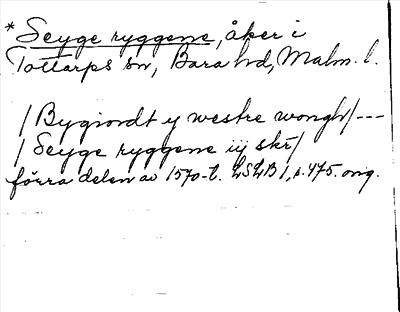 * Seyge ryggene, åker i
Tottarps sn, Bara hd, Malm. l.
/ Bygiordt y westre wongh / ---
/ Seyge ryggene iij skr /
förra delen av 1570-t. LSLB 1, s. 475. orig.